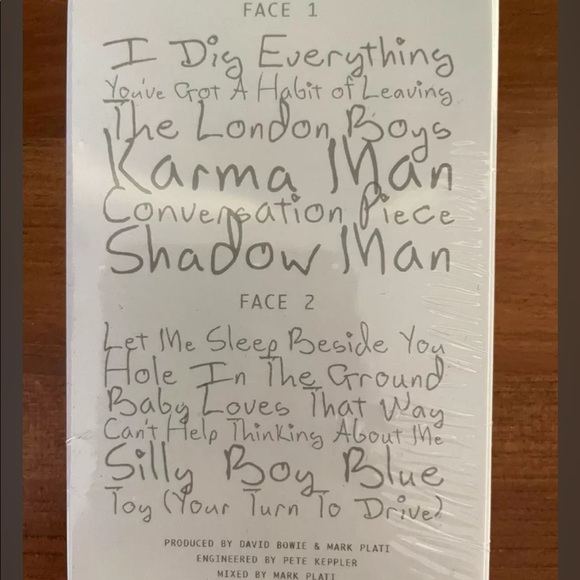 FACE 1
I Dig Everything
You've Got A Habit of Leaving
The London Boys
Karma Man
Conversation Piece
Shadow Man
FACE 2
Let Me Sleep Beside You
Hole In The Ground
Baby Loves That Way
Can't Help Thinking About Me
Silly Boy Blue
Toy (Your Turn To Drive)
PRODUCED BY DAVID BOWIE & MARK PLATI
ENGINEERED BY PETE KEPPLER
MIXED BY MARK PLATI